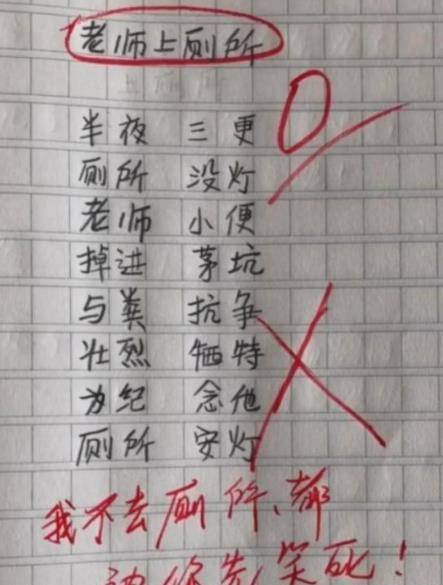 老师上厕所
半夜 三更
厕所 没灯
老师 小便
掉进 茅坑
与粪 抗争
壮烈 牺特
为纪 念他
厕所 安灯
0
我不去厕所、都
被你先笑死!